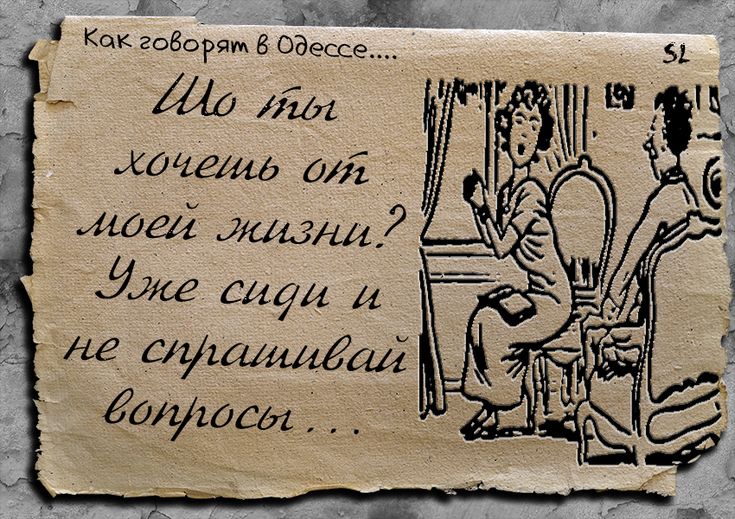 Как говорят в Одессе....
SL
Шо ты
хочешь от
моей жизни?
Уже сиди и
не спрашивай
вопросы...